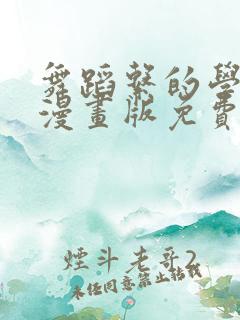 舞蹈系的學
漫畫版免費
煙斗老哥2
未任同意禁止轉載